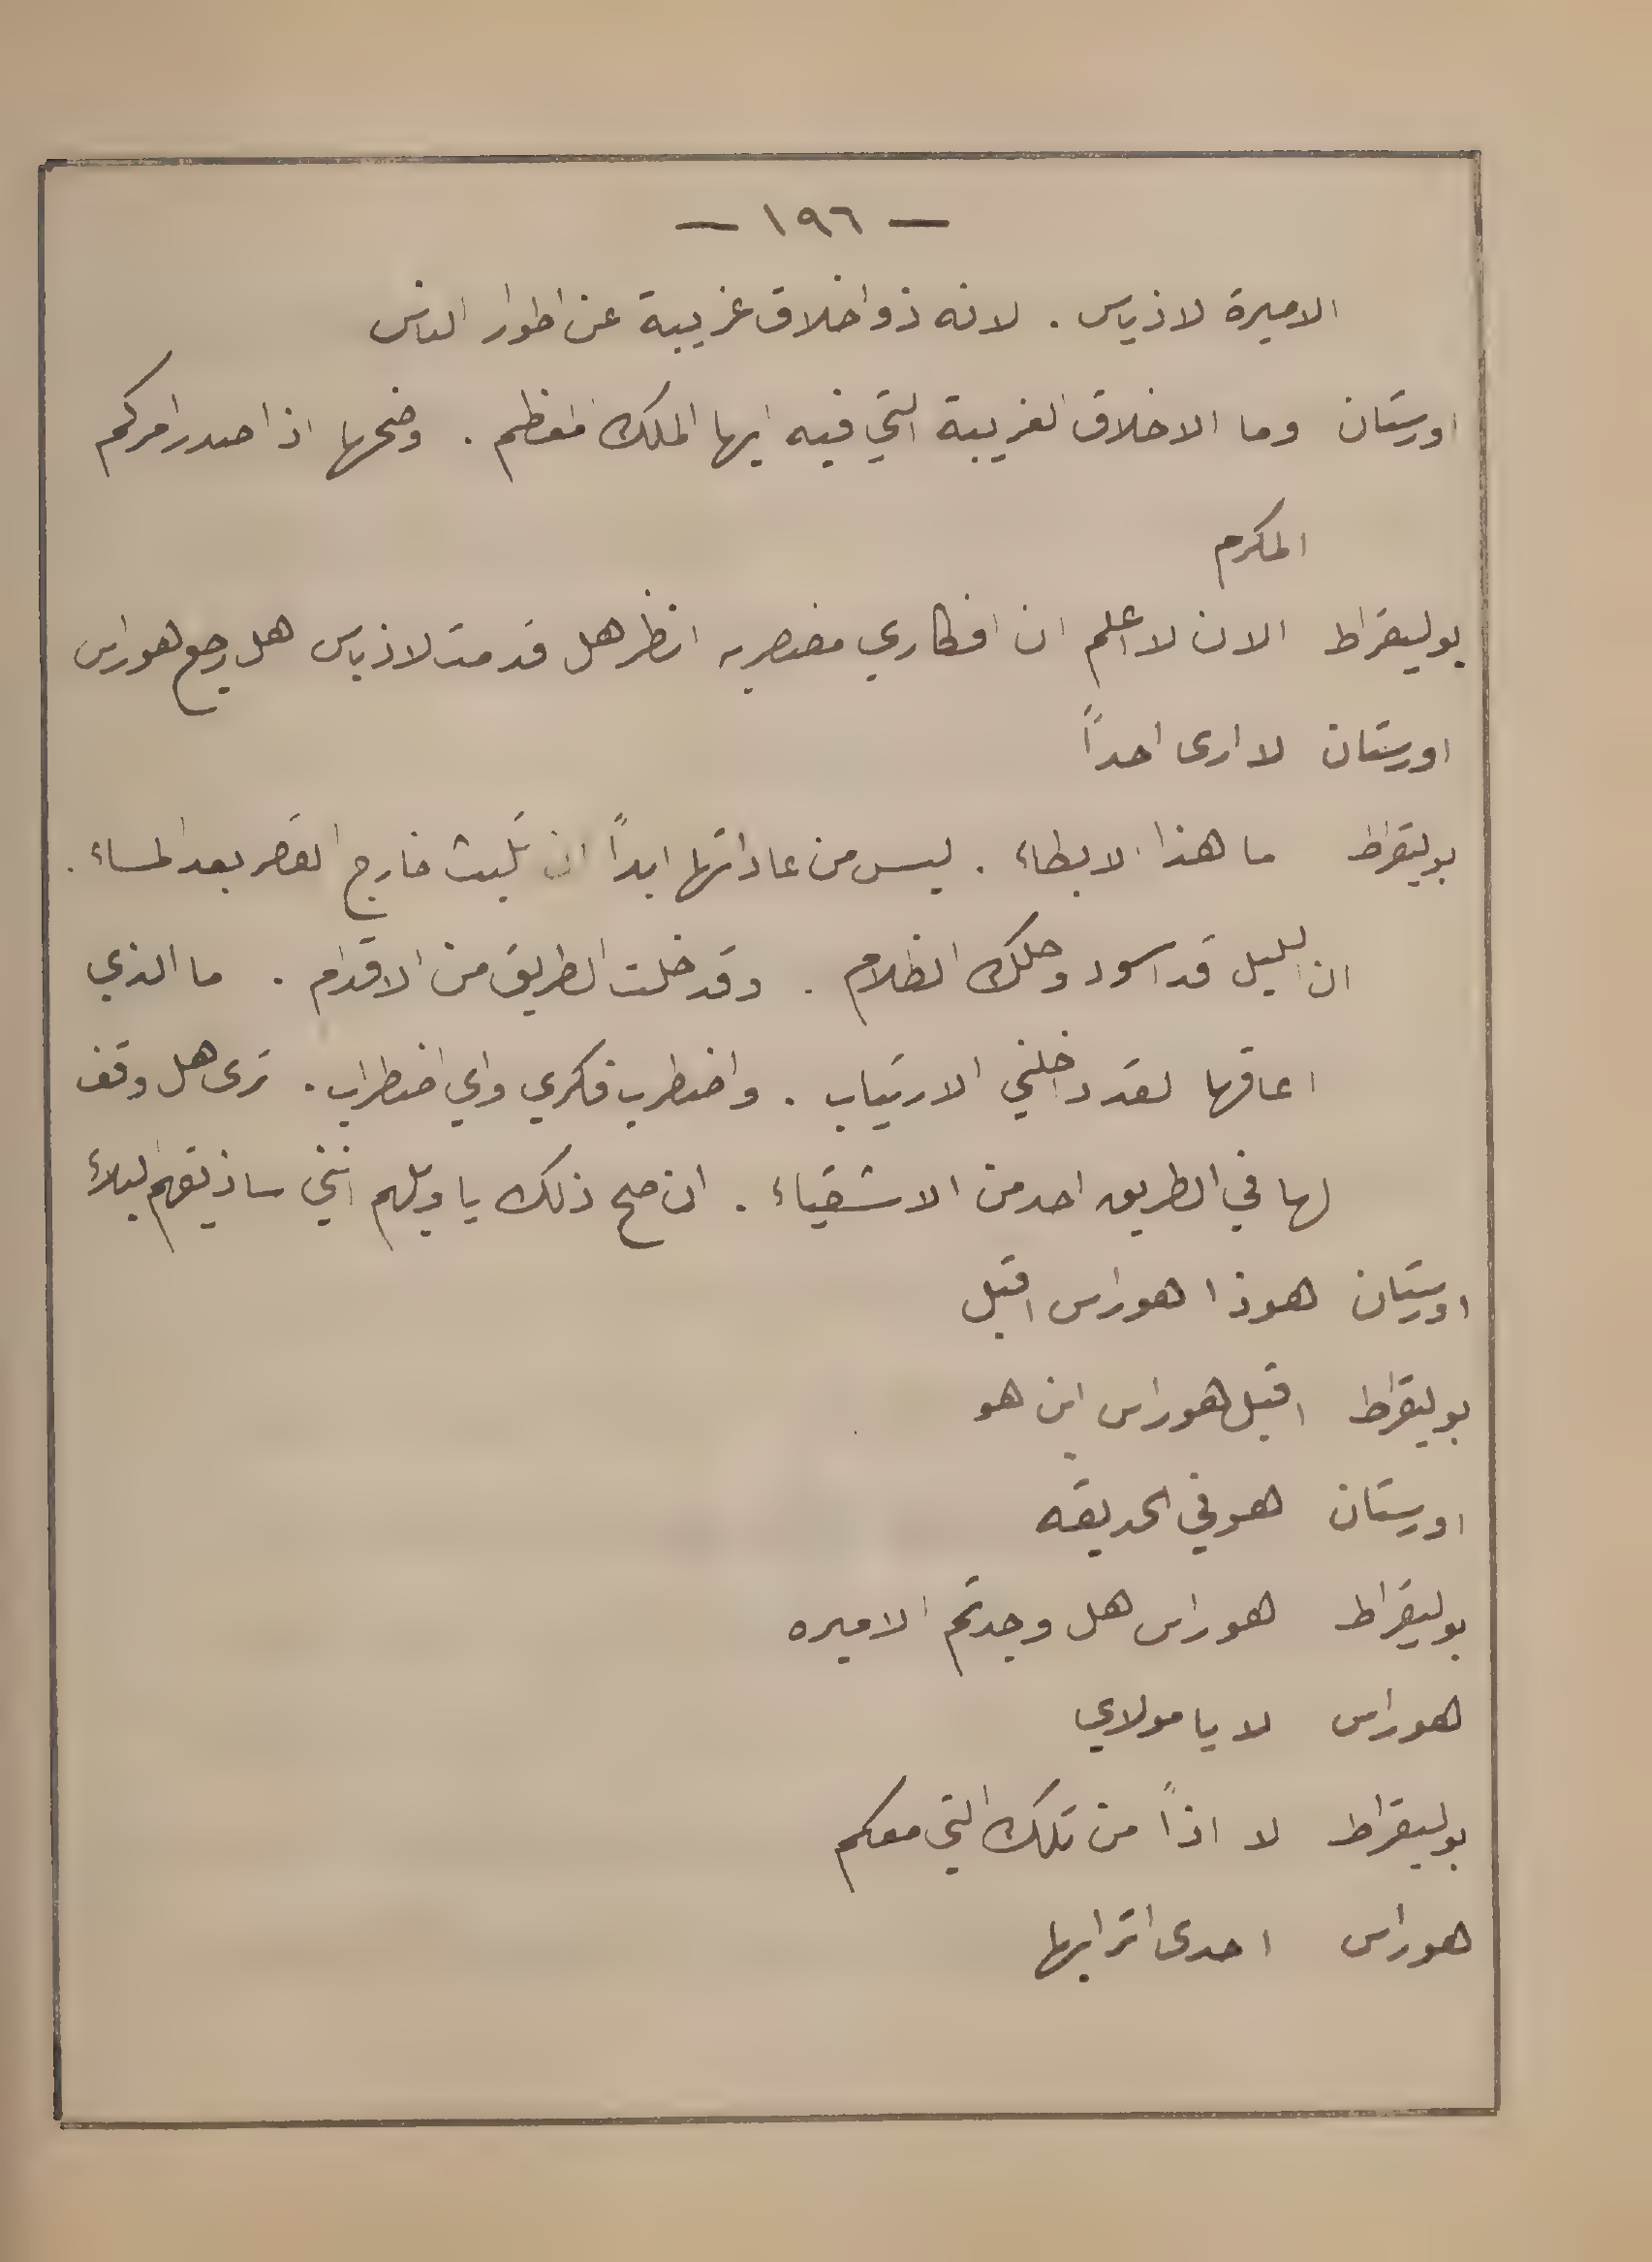 — ١٩٦ —
الاميرة لاذياس . لانه ذو اخلاق غريبة عن اطوار الناس
اورستان وما الاخلاق الغريبة التي فيه ايها الملك المعظم . وضحها اذا صدر امركم
المكرم
بوليقراط الان لا اعلم ان افكاري مضطربه انظر هل قدمت لاذياس هل رجع هوراس
اورستان لا ارى احداً
بوليقراط ما هذا الابطاء . ليس من عاداتها ابداً ان تلبث خارج القصر بعد المساء .
ان الليل قد اسود وحلك الظلام . وقد خلت الطريق من الاقدام . ما الذي
اعاقها لقد داخلني الارتياب . واضطرب فكري واي اضطراب . ترى هل وقف
لها في الطريق احد من الاشقياء . ان صح ذلك يا ويلهم انني ساذيقهم البلاء
اورستان هوذا هوراس اقبل
بوليقراط اقبل هوراس اين هو
اورستان هو في الحديقه
بوليقراط هوراس هل وجدتم الاميره
هوراس لا يا مولاي
بوليقراط لا اذاً من تلك التي معكم
هوراس احدى اترابها